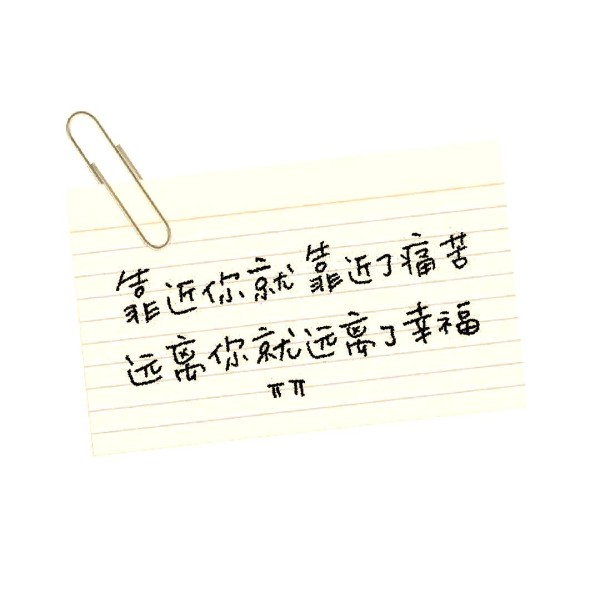 靠近你就靠近了痛苦
远离你就远离了幸福
ㅠㅠ